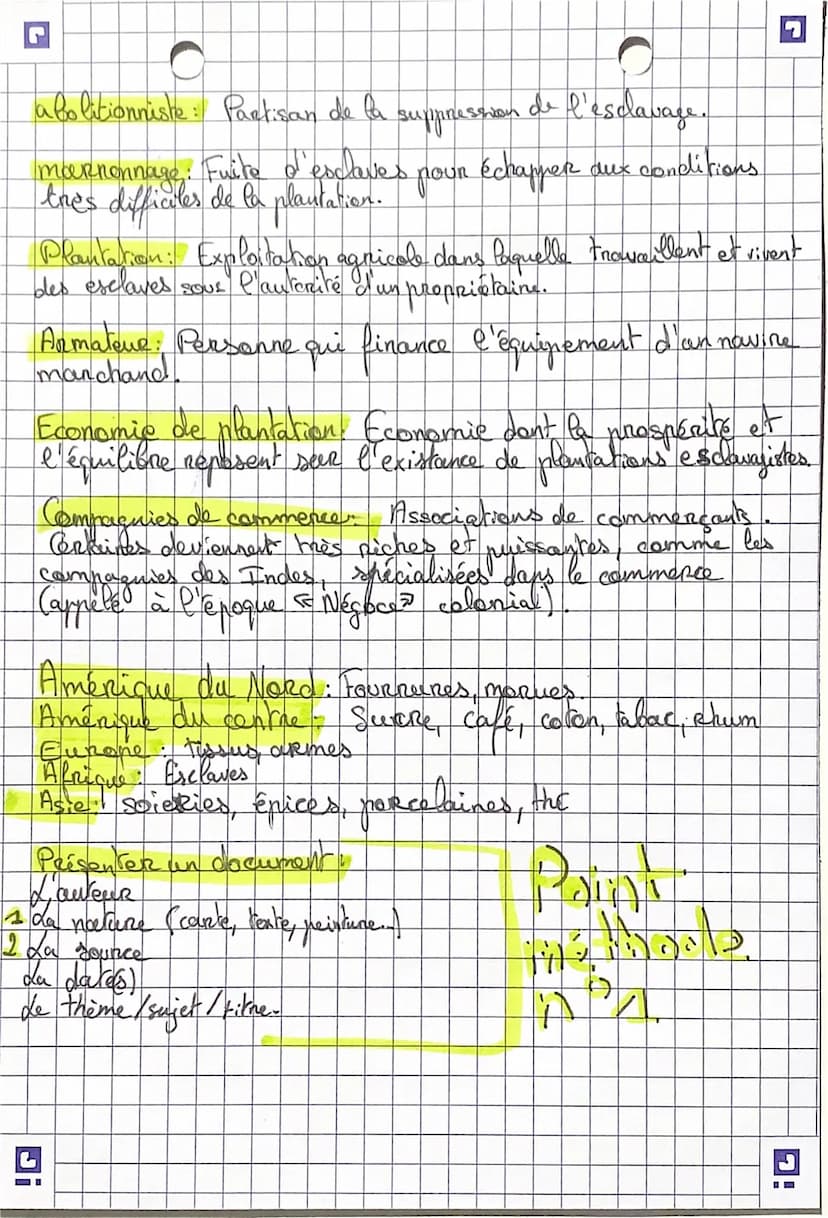 abolitionniste: Partisan de la suppression de l'esclavage.
marronnage: Fuite d'esclaves pour échapper aux conditions
très difficiles de la plantation.
Plantation: Exploitation agricole dans laquelle travaillent et vivent
des esclaves sous l'autorité d'un propriétaire.
Armateur: Personne qui finance l'équipement d'un navire
marchand.
Economie de plantation: Economie dont la prospérité et
l'équilibre reposent sur l'existance de plantations esclavagistes.
Compagnies de commerce: Associations de commerçants.
Certaines deviennent très riches et puissantes, comme les
compagnies des Indes, spécialisées dans le commerce
(appelé à l'époque «Négoce» colonial).
Amérique du Nord: Fourrures, morues.
Amérique du centre: Sucre, café, coton, tabac, rhum
Europe: tissus, armes
Afrique: Esclaves
Asie: soieries, épices, porcelaines, thé
Présenter un document:
L'auteur
1 La nature (carte, texte, peinture...)
2 La source
La date(s)
Le thème/sujet/titre.
Point
méthode
n°1